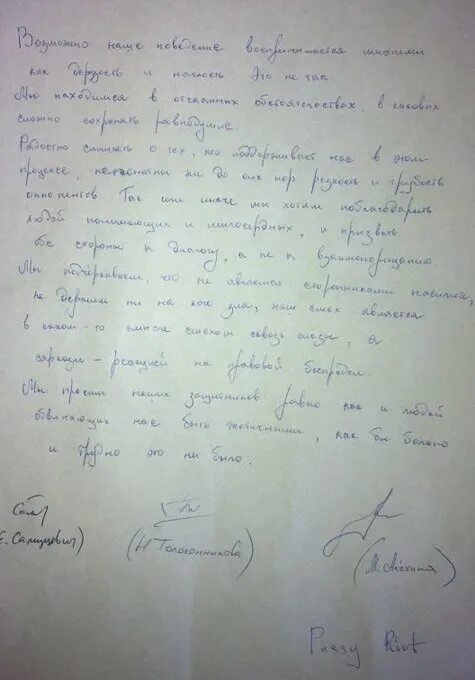 Возможно наше поведение воспринимается многими
как дерзость и наглость. Это не так.
Мы находимся в отчаянных обстоятельствах, в каковых
сложно сохранять равнодушие.
Радостно слышать о тех, кто поддерживает нас в этом
процессе, непонятны ни до сих пор резкость и грубость
оппонентов. Так или иначе мы хотим поблагодарить
людей понимающих и милосердных, и призвать
обе стороны к диалогу, а не к взаимопорицанию.
Мы подчёркиваем, что не являемся сторонниками насилия,
не держим ни на кого зла, наш смех является
в каком-то смысле смехом сквозь слёзы, а
сарказм - реакцией на правовой беспредел.
Мы просим наших защитников равно как и людей
обвиняющих нас быть тактичными, как бы больно
и трудно это ни было.
(Е. Самуцевич) (Н Толоконникова) (М. Алёхина)
Pussy Riot